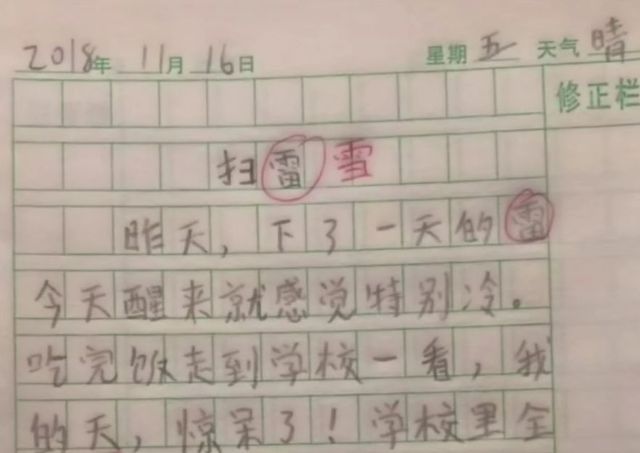 2018年 11月 16日 星期 五 天气 晴
修正栏
扫雷 雪
昨天，下了一天的雷
今天醒来就感觉特别冷。
吃完饭走到学校一看，我
的天，惊呆了！学校里全